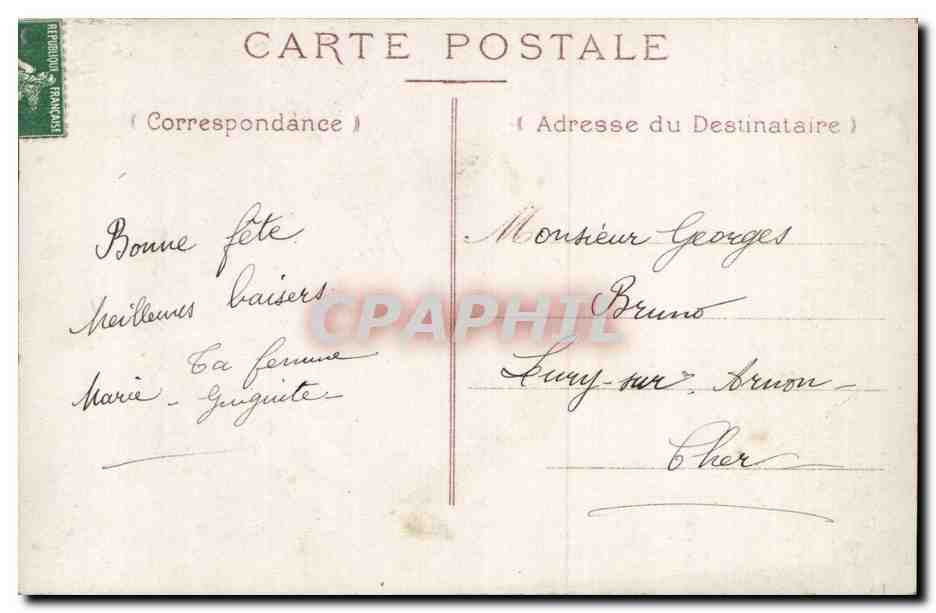 REPUBLIQUE FRANÇAISE
CARTE POSTALE
( Correspondance )
( Adresse du Destinataire )
Bonne fête
Meilleures baisers
Ta femme
Marie - Guguite -
Monsieur Georges
Bruno
Lury-sur-Arnon -
Cher
CPAPHIL